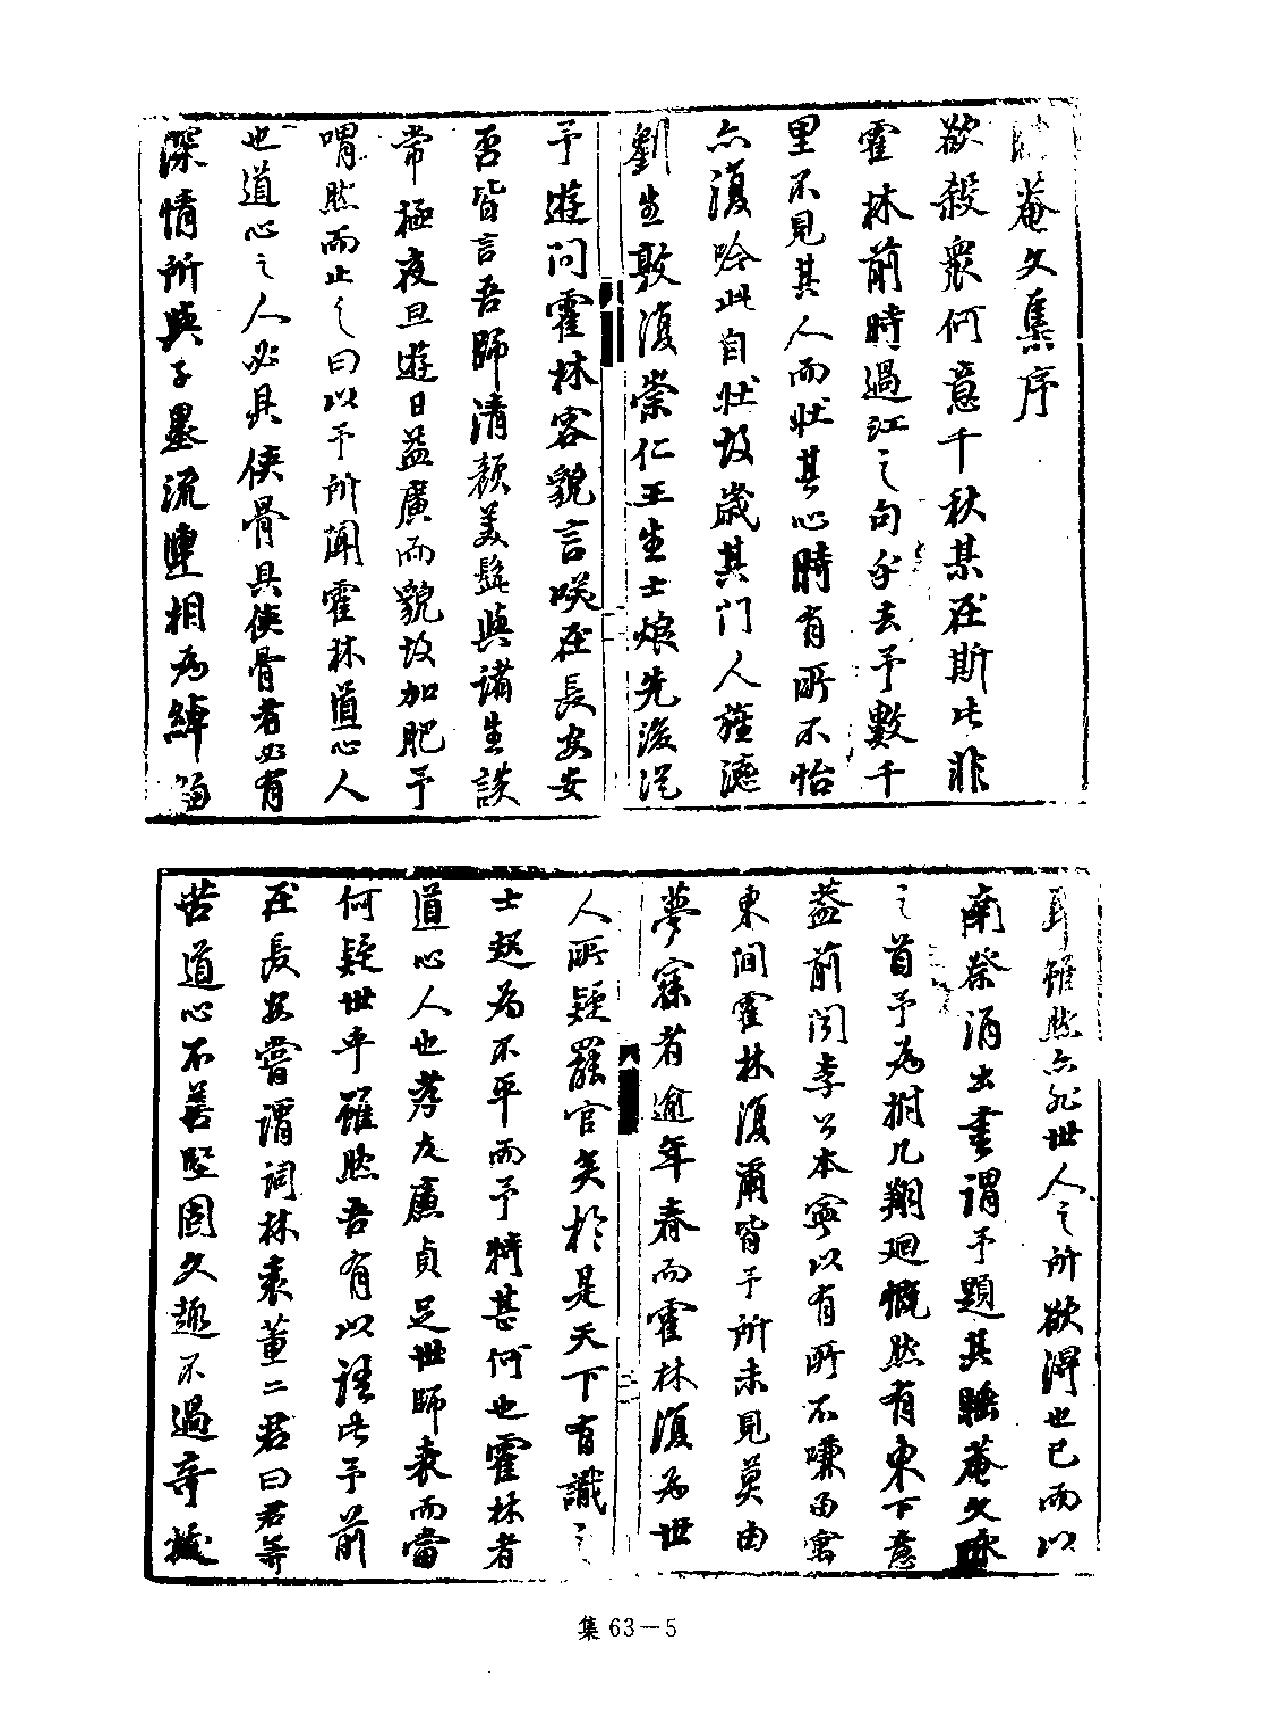 睡菴文集序
欲殺衆何意千秋某在斯此非
霍林前時過江之句乎去予數千
里不見其人而壯其心時有所不怡
亦復吟此自壯故歲其門人旌德
劉生敦復崇仁王生士烺先後從
予遊問霍林容貌言咲在長安安
否皆言吾師清顏美髭與諸生談
常極夜旦遊日益廣而貌故加肥予
喟然而止之曰以予所聞霍林道心人
也道心之人必具俠骨具俠骨者必有
深情所與子墨流連相為綽
耳雖然亦非世人之所欲得也已而以
南祭酒出書謂予題其睡菴文
之首予為拊几翔迴慨然有東下意
蓋前聞李公本寧以有所不嗛而寓
東間霍林復爾皆予所未見莫由
夢寐者逾年春而霍林復為世
人所疑罷官矣於是天下有識之
士起為不平而予特甚何也霍林者
道心人也孝友廉貞足世師表而當
何疑世乎雖然吾有以語此予前
在長安嘗謂詞林袁董二君曰君等
苦道心不善堅固文趣不過奇拔
集 63－5